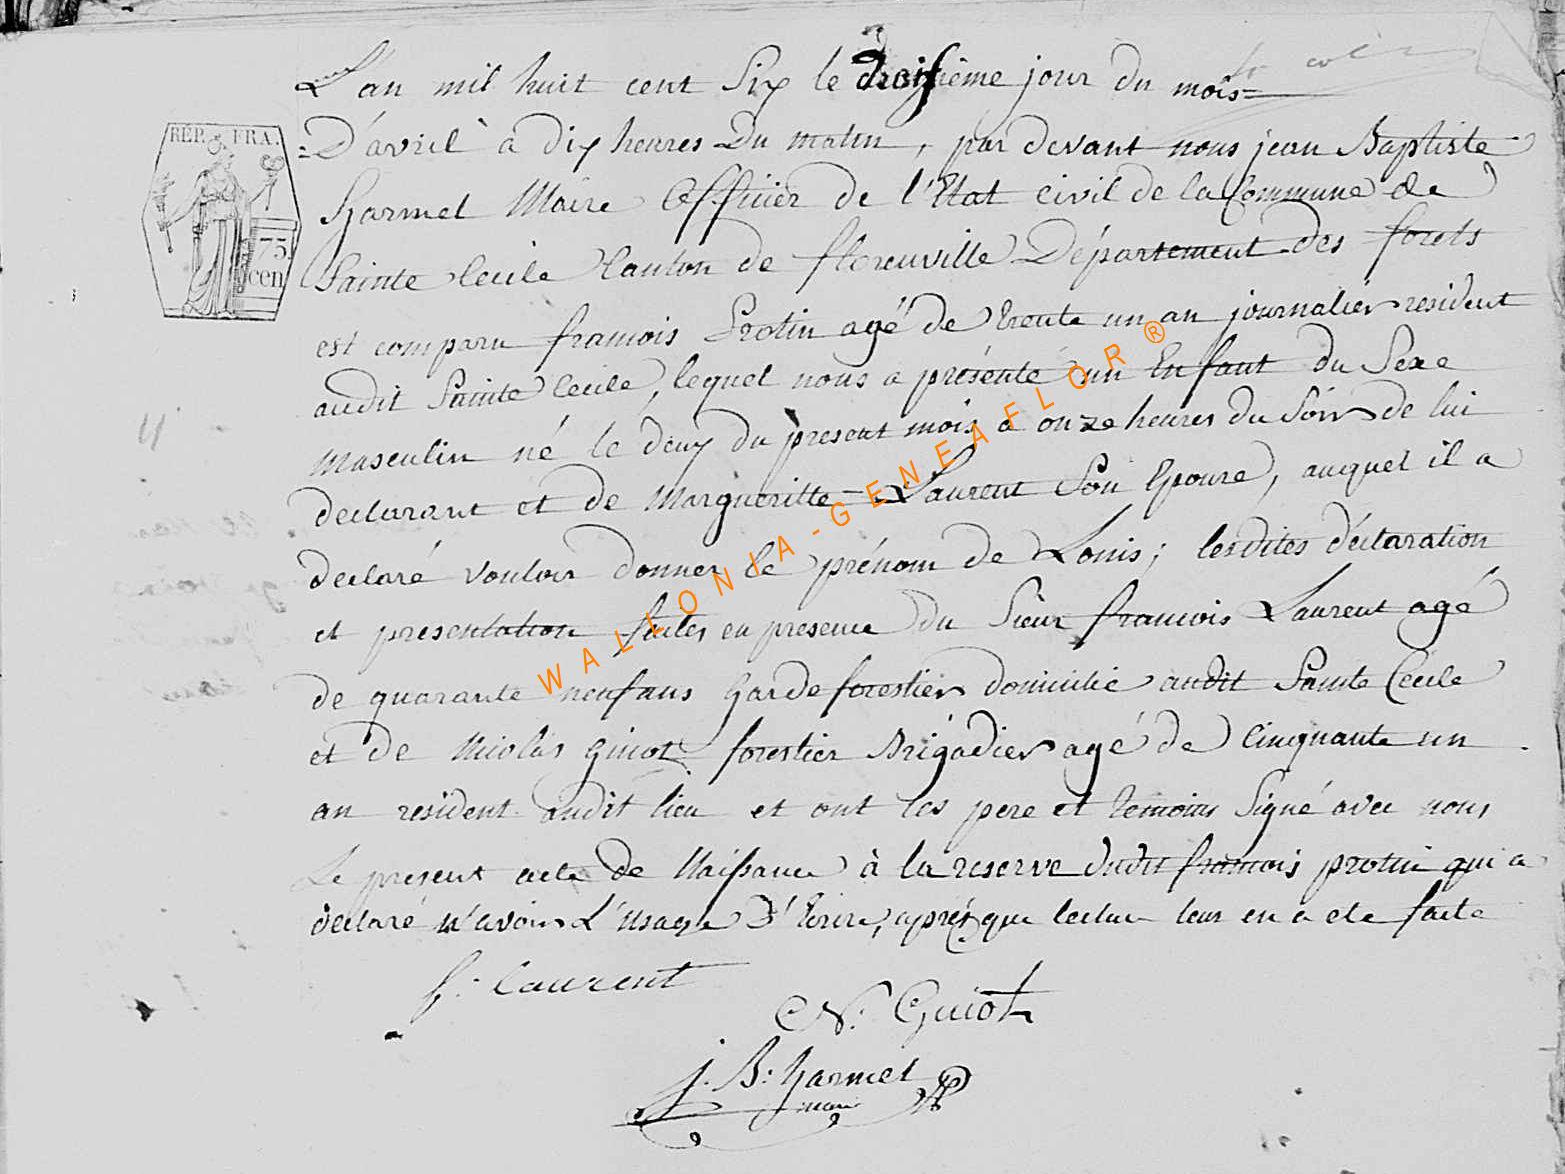 L'an mil huit cent Six le troisième jour du mois
REP. FRA.
75
cen
D'avril à dix heures Du matin, par devant nous jean Baptiste
Harmel Maire Officier de l'Etat Civil de la Commune de
Sainte Cecile Canton de florenville Département des forets
est comparu francois Protin agé de trente un an journalier resident
audit Sainte Cecile, lequel nous a présenté un Enfant du Sexe
Masculin né le deux du present mois a onze heures du Soir de lui
declarant et de Margueritte Laurent Son Epouse, auquel il a
declaré vouloir donner le prénom de Louis; lesdites déclaration
et presentation faites en presence du Sieur francois Laurent agé
de quarante neuf ans Garde forestier domicilié audit Sainte Cecile
et de Nicolas Guiot forestier Brigadier agé de Cinquante un
an resident audit lieu et ont les pere et temoins Signé avec nous
Le present acte de Naissance à la reserve dudit francois protin qui a
déclaré n'avoir L'usage D'Ecrire, après que lecture leur en a ete faite
f. Laurent
N. Guiot
j. B. harmel
maire
WALLONIA-GENEAFLOR ®